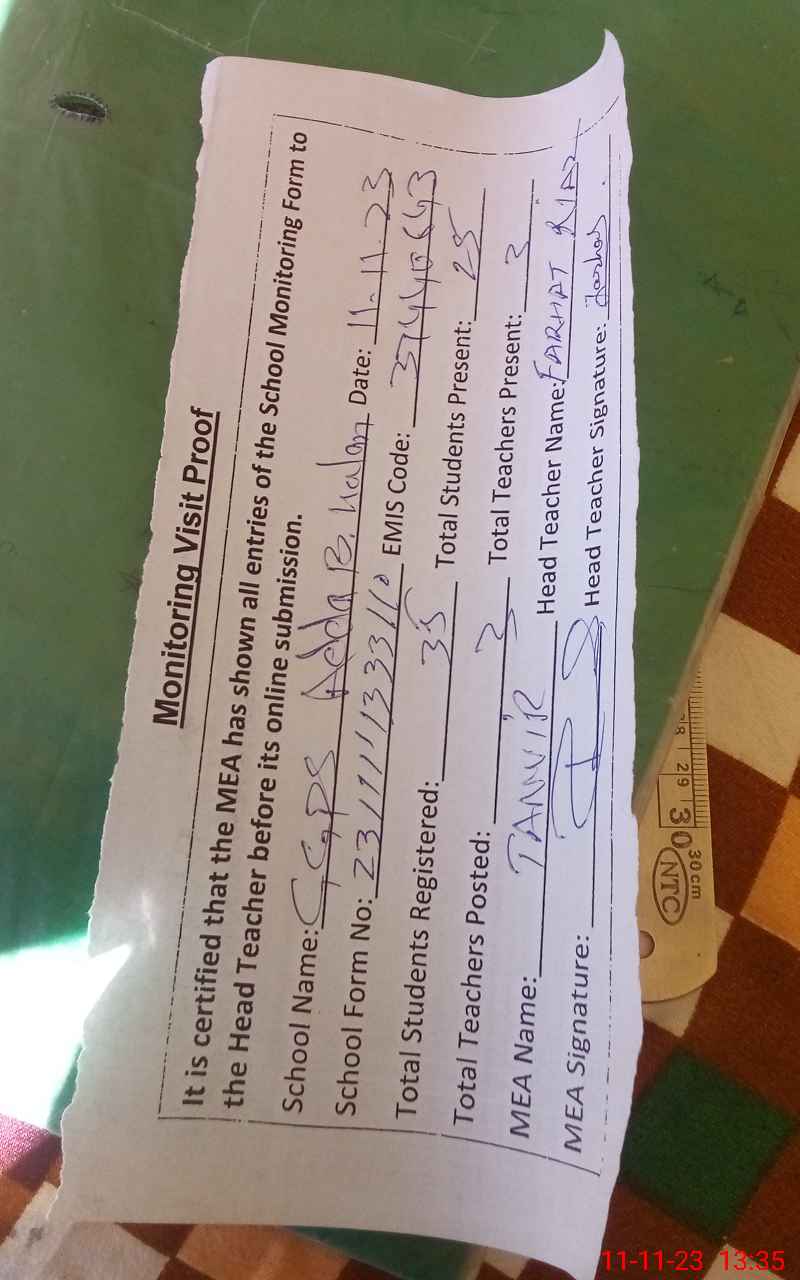 Monitoring Visit Proof
It is certified that the MEA has shown all entries of the School Monitoring Form to
the Head Teacher before its online submission.
School Name: GGPS Adda B. Kalan Date: 11.11.23
School Form No: EMIS Code:
Total Students Registered: 35 Total Students Present: 25
Total Teachers Posted: 3 Total Teachers Present: 3
MEA Name: TANVIR Head Teacher Name: FARHAT RIAZ
MEA Signature: Head Teacher Signature: Farhat
28 29 30
30 cm
NTC
11-11-23 13:35